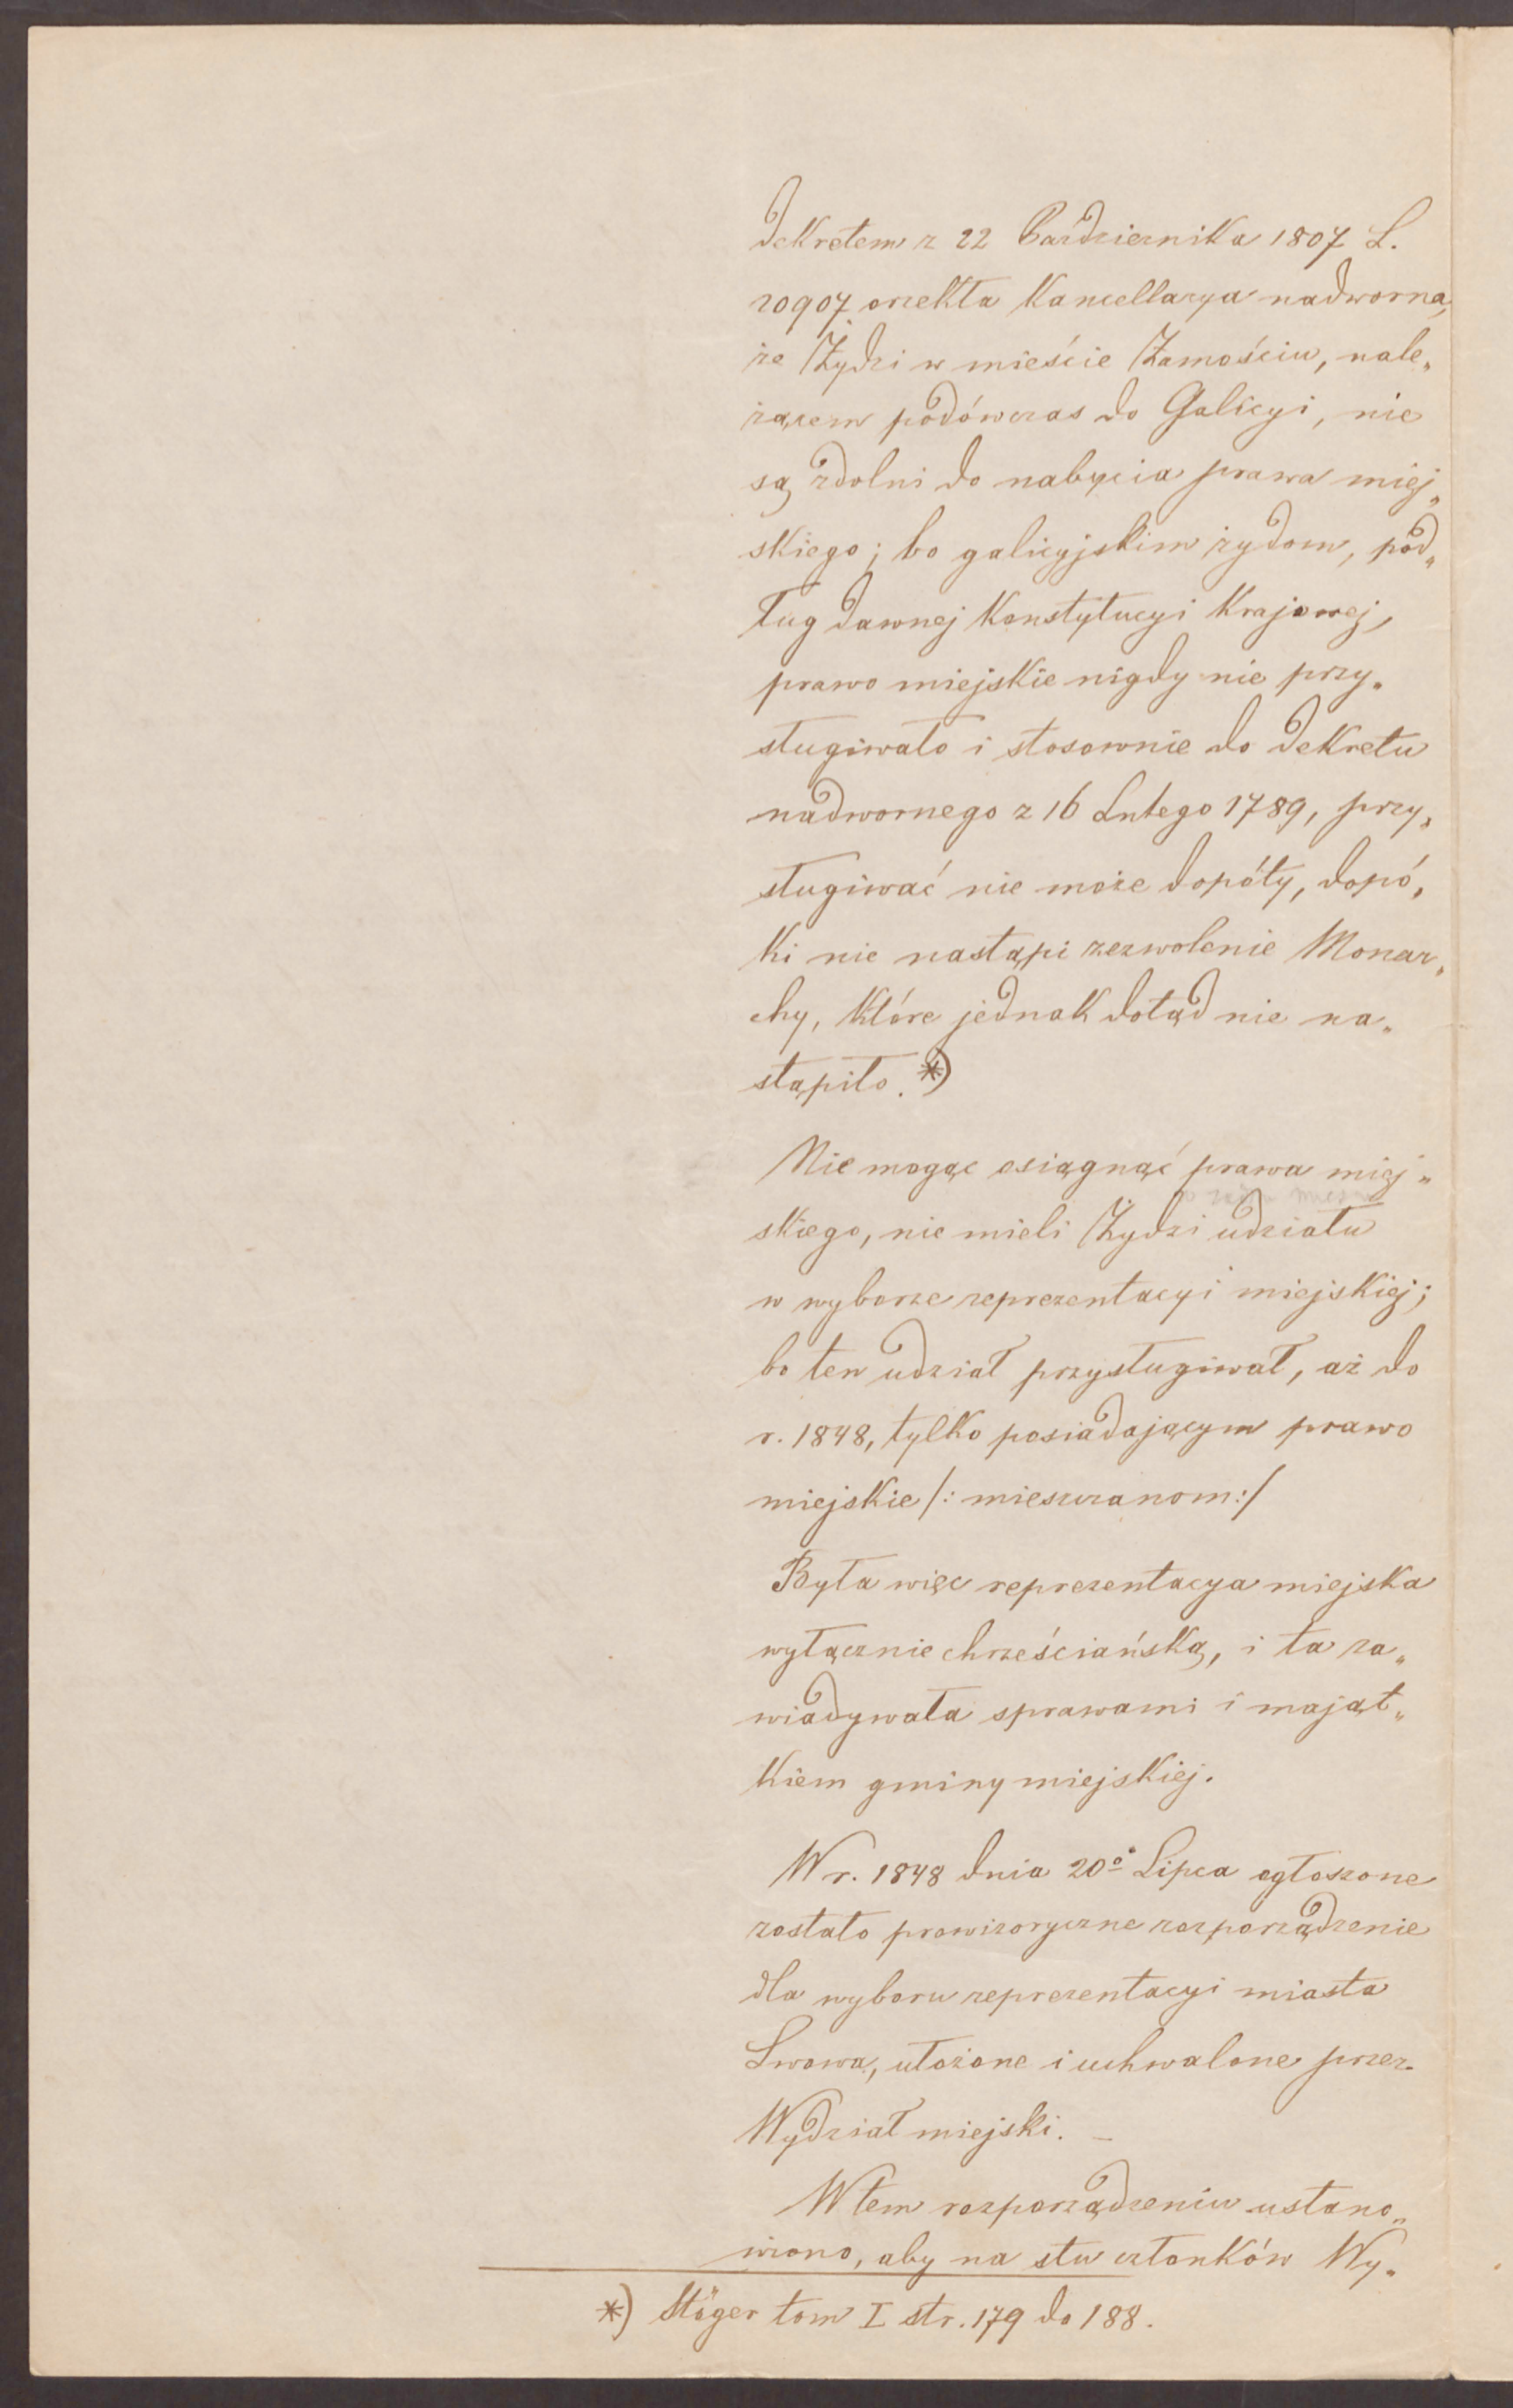 Dekretem z 22 Października 1807 L.
20907 orzekła Kancellarya nadworna,
że Żydzi w mieście Zamościu, nale„
żącem podówczas do Galicyi, nie
są zdolni do nabycia prawa miej„
skiego; bo galicyjskim żydom, pod„
ług dawnej Konstytucyi Krajowej,
prawo miejskie nigdy nie przy„
sługiwało i stosownie do dekretu
nadwornego z 16 Lutego 1789, przy„
sługiwać nie może dopóty, dopó„
ki nie nastąpi zezwolenie Monar„
chy, które jednak dotąd nie na„
stąpiło. *)
Nie mogąc osiągnąć prawa miej„
skiego, nie mieli Żydzi udziału
w wyborze reprezentacyi miejskiej;
bo ten udział przysługiwał, aż do
r. 1848, tylko posiadającym prawo
miejskie /: mieszczanom :/
Była więc reprezentacya miejska
wyłącznie chrześciańską, i ta za„
wiadywała sprawami i mająt„
kiem gminy miejskiej.
W r. 1848 dnia 20º Lipca ogłoszone
zostało prowizoryczne rozporządzenie
dla wyboru reprezentacyi miasta
Lwowa, ułożone i uchwalone przez
Wydział miejski. –
W tem rozporządzeniu ustano„
wiono, aby na stu członków Wy„
*) Stöger tom I str. 179 do 188.